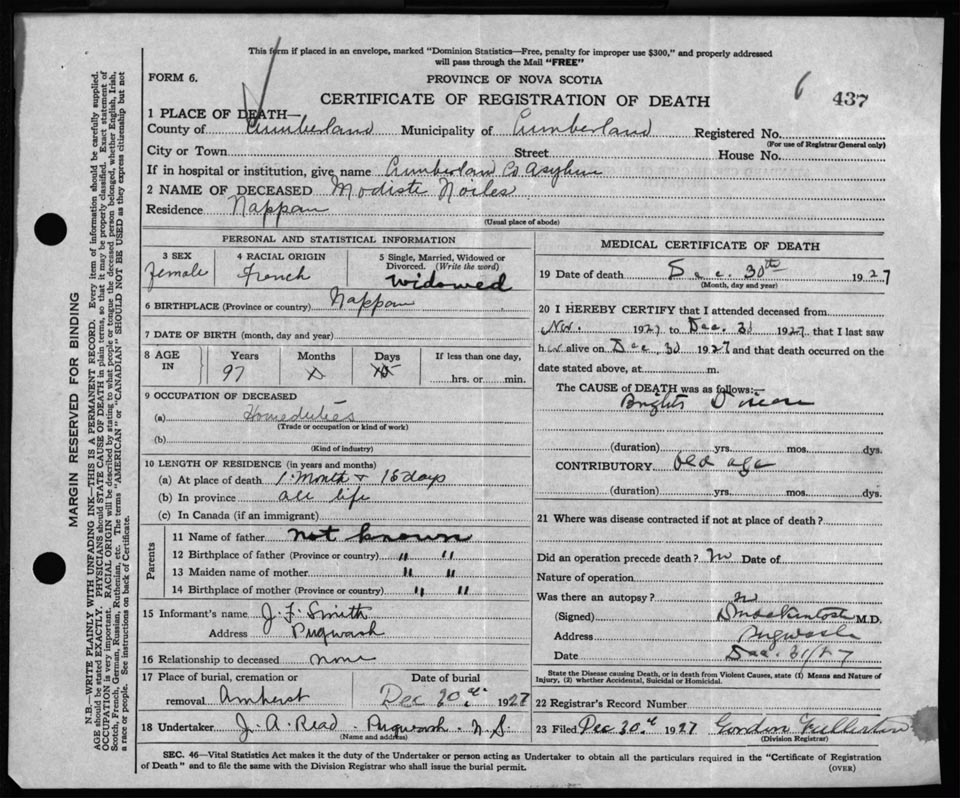 This form if placed in an envelope, marked "Dominion Statistics—Free, penalty for improper use $300," and properly addressed
will pass through the Mail "FREE"
FORM 6.
PROVINCE OF NOVA SCOTIA
CERTIFICATE OF REGISTRATION OF DEATH
6 437
1 PLACE OF DEATH—
County of Cumberland Municipality of Cumberland Registered No.
(For use of Registrar General only)
City or Town Street House No.
If in hospital or institution, give name Cumberland Co Asylum
2 NAME OF DECEASED Modiste Noiles
Residence Nappan
(Usual place of abode)
PERSONAL AND STATISTICAL INFORMATION
3 SEX 4 RACIAL ORIGIN 5 Single, Married, Widowed or
Divorced. (Write the word)
female French Widowed
6 BIRTHPLACE (Province or country) Nappan
7 DATE OF BIRTH (month, day and year)
8 AGE IN Years Months Days If less than one day,
97 hrs. or min.
9 OCCUPATION OF DECEASED
(a) Homeduties
(Trade or occupation or kind of work)
(b)
(Kind of industry)
10 LENGTH OF RESIDENCE (in years and months)
(a) At place of death 1 Month & 15 days
(b) In province all life
(c) In Canada (if an immigrant)
Parents
11 Name of father not known
12 Birthplace of father (Province or country) " "
13 Maiden name of mother " "
14 Birthplace of mother (Province or country) " "
15 Informant's name J. F. Smith
Address Pugwash
16 Relationship to deceased none
17 Place of burial, cremation or Date of burial
removal Amherst Dec 30 1927
18 Undertaker J. A. Read - Pugwash - N.S
(Name and address)
MEDICAL CERTIFICATE OF DEATH
19 Date of death Dec. 30th 1927
(Month, day and year)
20 I HEREBY CERTIFY that I attended deceased from
Nov. 1927 to Dec. 30 1927, that I last saw
her alive on Dec. 30 1927 and that death occurred on the
date stated above, at m.
The CAUSE OF DEATH was as follows:—
Brights Disease
(duration) yrs. mos. dys.
CONTRIBUTORY Old age
(duration) yrs. mos. dys.
21 Where was disease contracted if not at place of death?
Did an operation precede death? No Date of
Nature of operation
Was there an autopsy? no
(Signed) Mackintosh M.D.
Address Pugwash
Date Dec. 31/27
State the Disease causing Death, or in death from Violent Causes, state (1) Means and Nature of
Injury, (2) whether Accidental, Suicidal or Homicidal.
22 Registrar's Record Number
23 Filed Dec 30 1927 Gordon Fullerton
(Division Registrar)
SEC. 46—Vital Statistics Act makes it the duty of the Undertaker or person acting as Undertaker to obtain all the particulars required in the "Certificate of Registration
of Death" and to file the same with the Division Registrar who shall issue the burial permit.
(OVER)
MARGIN RESERVED FOR BINDING
N.B.—WRITE PLAINLY WITH UNFADING INK—THIS IS A PERMANENT RECORD. Every item of information should be carefully supplied.
AGE should be stated EXACTLY. PHYSICIANS should STATE CAUSE OF DEATH in plain terms, so that it may be properly classified. Exact statement of
OCCUPATION is very important. RACIAL ORIGIN will be described by stating to what people or tongue the deceased person belonged, whether English, Irish,
Scotch, French, German, Russian, Ruthenian, etc. The terms "AMERICAN" or "CANADIAN" SHOULD NOT BE USED as they express citizenship but not
a race or people. See instructions on back of Certificate.